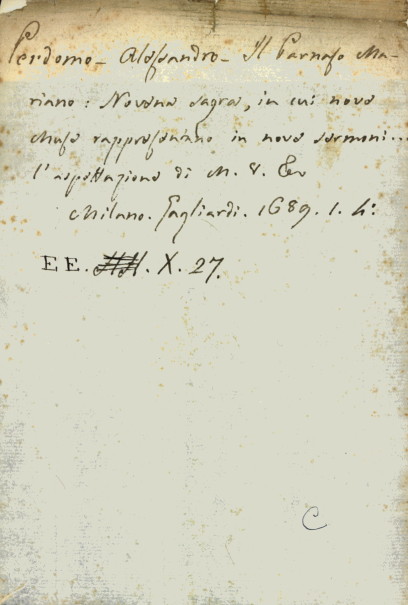 Perdomo - Alessandro - Il Parnaso Ma-
riano: Novena sagra, in cui nove
Muse rappresentano in nove sermoni...
l'aspettazione di M. V. &c
Milano. Gagliardi. 1689. 1. 4:
EE. . X. 27.
C